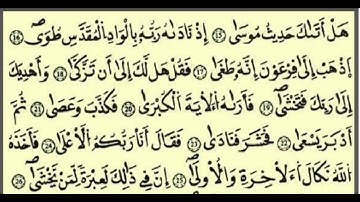 هَلْ أَتَىٰكَ حَدِيثُ مُوسَىٰٓ ١٥ إِذْ نَادَىٰهُ رَبُّهُۥ بِٱلْوَادِ ٱلْمُقَدَّسِ طُوًى ١٦
ٱذْهَبْ إِلَىٰ فِرْعَوْنَ إِنَّهُۥ طَغَىٰ ١٧ فَقُلْ هَل لَّكَ إِلَىٰٓ أَن تَزَكَّىٰ ١٨ وَأَهْدِيَكَ
إِلَىٰ رَبِّكَ فَتَخْشَىٰ ١٩ فَأَرَىٰهُ ٱلْءَايَةَ ٱلْكُبْرَىٰ ٢٠ فَكَذَّبَ وَعَصَىٰ ٢١ ثُمَّ
أَدْبَرَ يَسْعَىٰ ٢٢ فَحَشَرَ فَنَادَىٰ ٢٣ فَقَالَ أَنَا۠ رَبُّكُمُ ٱلْأَعْلَىٰ ٢٤ فَأَخَذَهُ
ٱللَّهُ نَكَالَ ٱلْءَاخِرَةِ وَٱلْأُولَىٰٓ ٢٥ إِنَّ فِى ذَٰلِكَ لَعِبْرَةً لِّمَن يَخْشَىٰٓ ٢٦